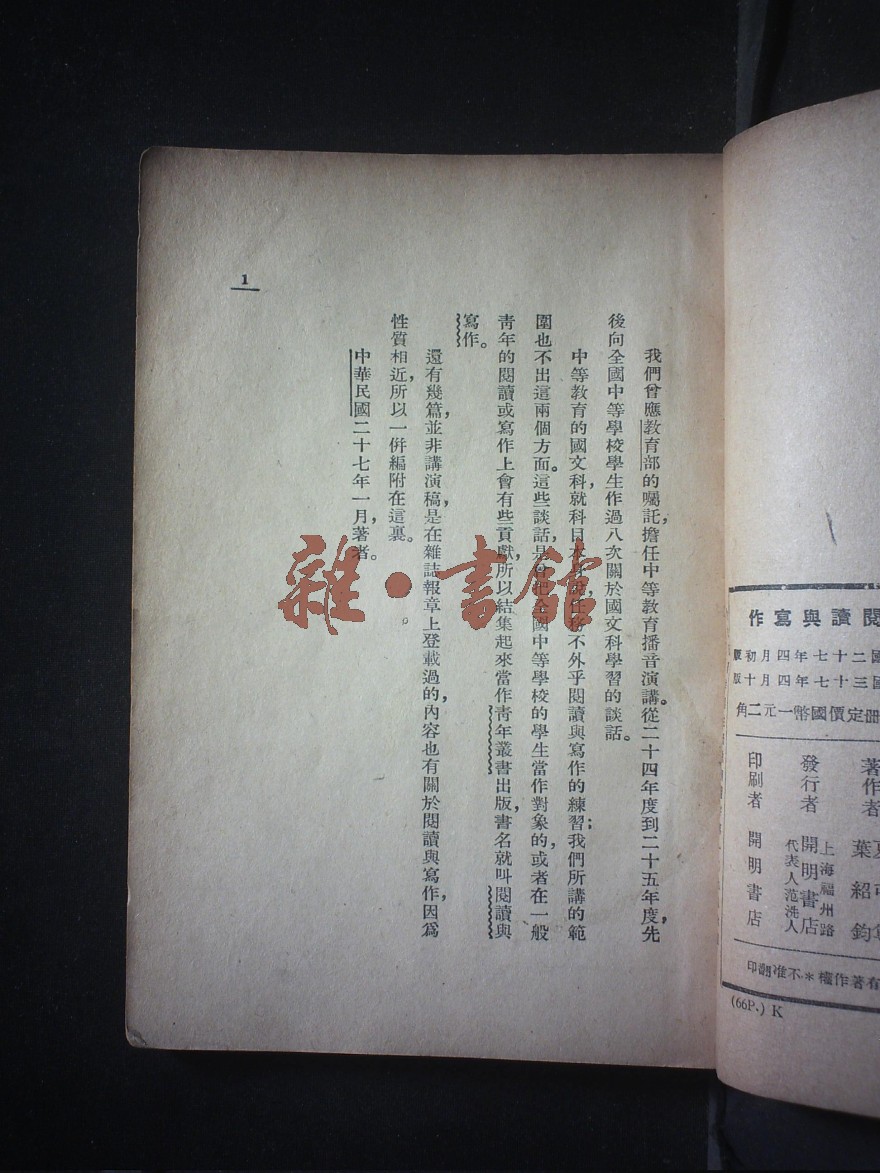 我們曾應教育部的囑託，擔任中等教育播音演講。從二十四年度到二十五年度，先
後向全國中等學校學生作過八次關於國文科學習的談話。
中等教育的國文科，就科目本身說，任務不外乎閱讀與寫作的練習；我們所講的範
圍也不出這兩個方面。這些談話，是曾把全國中等學校的學生當作對象的，或者在一般
青年的閱讀或寫作上會有些貢獻，所以結集起來當作青年叢書出版，書名就叫閱讀與
寫作。
還有幾篇，並非講演稿，是在雜誌報章上登載過的，內容也有關於閱讀與寫作，因爲
性質相近，所以一併編附在這裏。
中華民國二十七年一月，著者。
1
雜·書館
閱讀與寫作
國二十七年四月初版
國三十七年四月十版
册定價國幣一元二角
著作者
夏丏尊
葉紹鈞
發行者
開明書店
上海福州路
代表人范洗人
印刷者
開明書店
有著作權＊不准翻印
(66P.) K